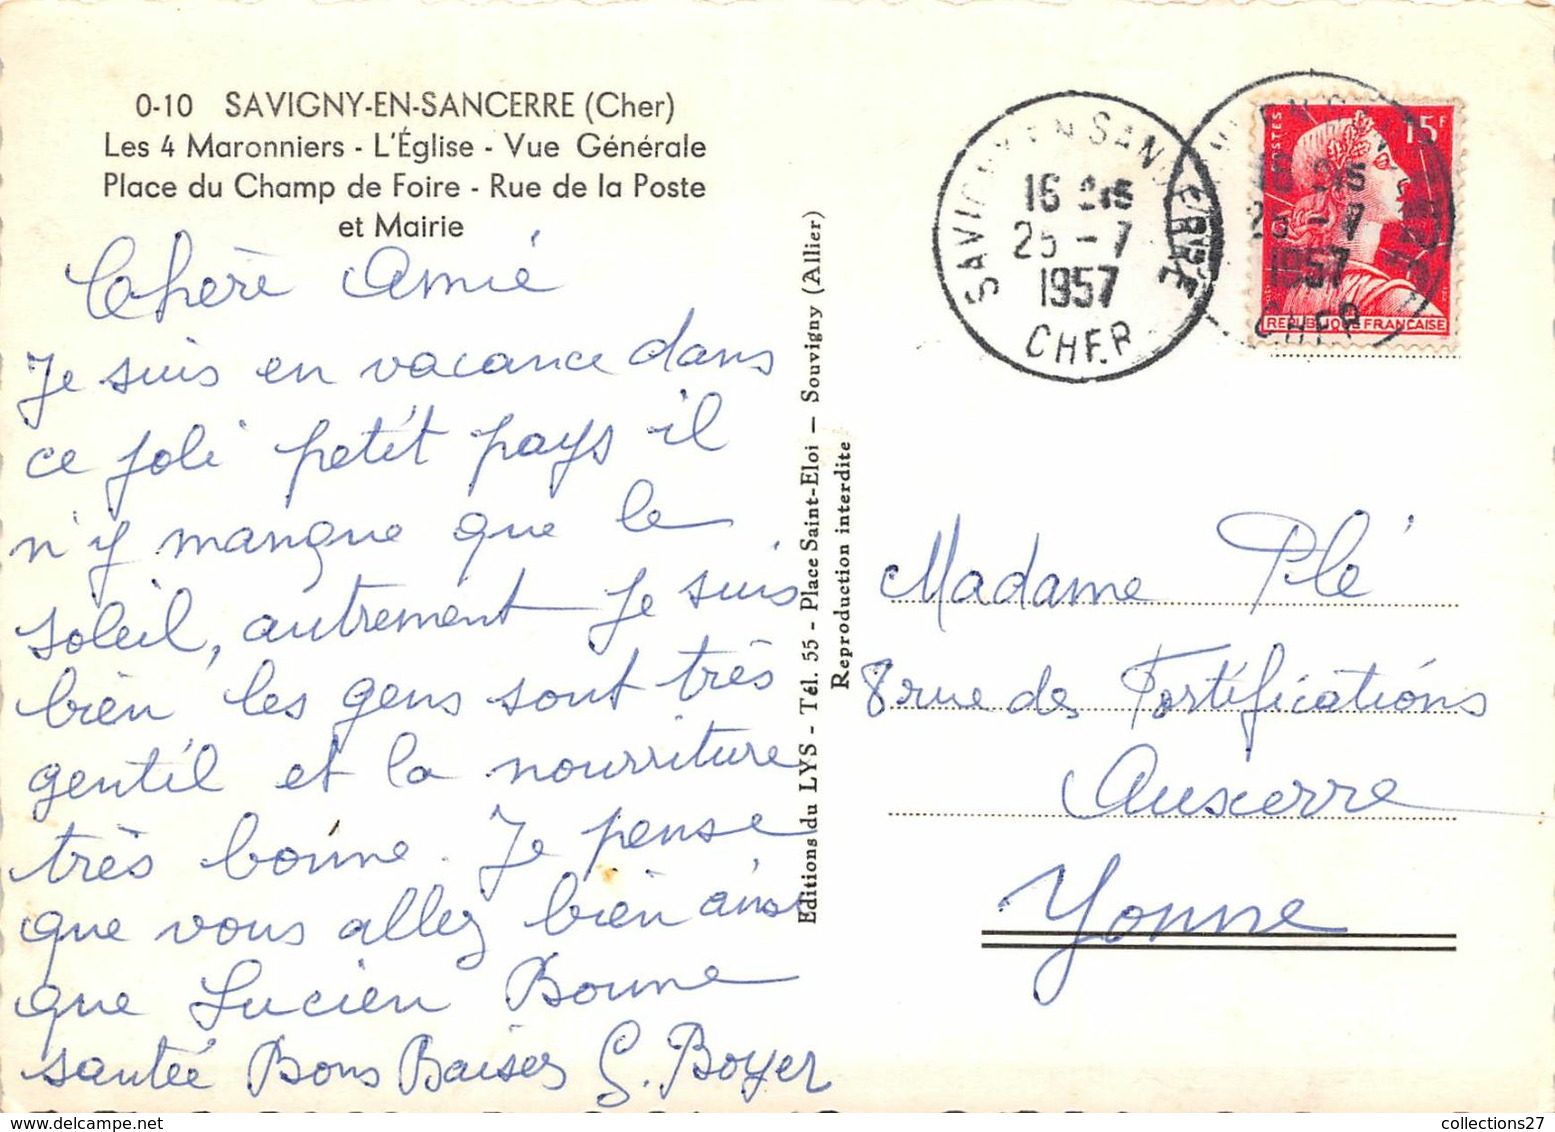 0-10 SAVIGNY-EN-SANCERRE (Cher)
Les 4 Maronniers - L'Église - Vue Générale
Place du Champ de Foire - Rue de la Poste
et Mairie
Chère Amie
Je suis en vacance dans
ce joli petit pays il
n'y manque que le
soleil, autrement je suis
bien les gens sont très
gentil et la nourriture
très bonne. Je pense
que vous allez bien ainsi
que Lucien Bonne
santée Bons Baises G. Boyer
Editions du LYS - Tél. 55 - Place Saint-Eloi — Souvigny (Allier)
Reproduction interdite
SAVIGNY EN SANCERRE
16 H 15
25 - 7
1957
CHER
POSTES
15F
REPUBLIQUE FRANCAISE
25 - 7
1957
CHER
Madame Plé
8 rue des Fortifications
Auxerre
Yonne
collections27